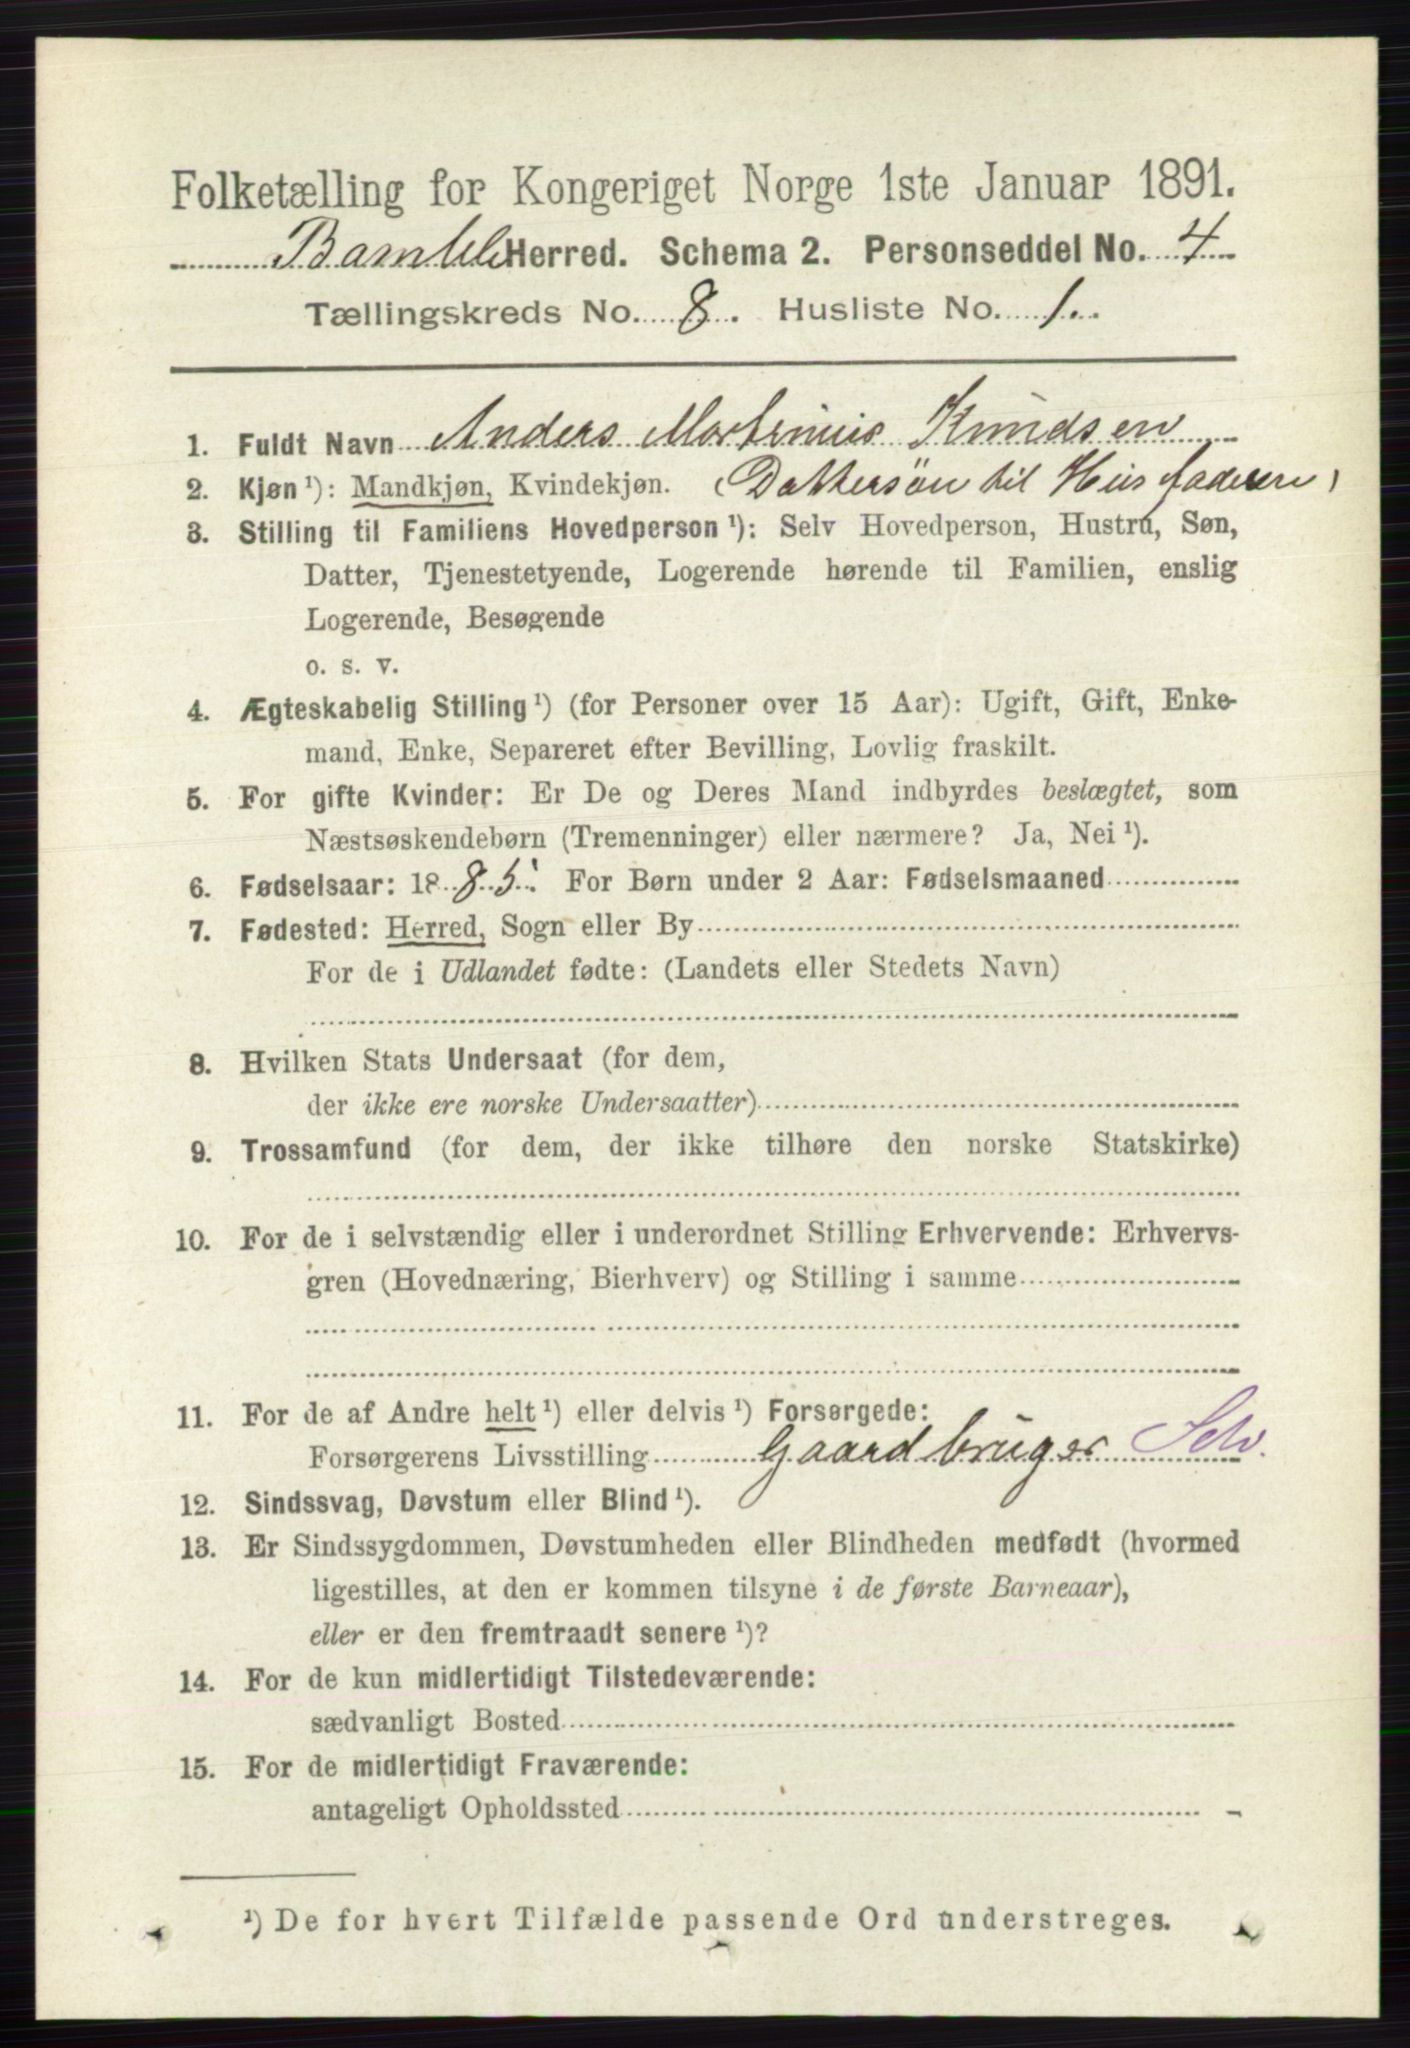 Folketælling for Kongeriget Norge 1ste Januar 1891.
Bamble Herred. Schema 2. Personseddel No. 4
Tællingskreds No. 8. Husliste No. 1.
1. Fuldt Navn Anders Martinius Knudsen
2. Kjøn ¹): Mandkjøn, Kvindekjøn. (Dattersøn til Husfaderen)
3. Stilling til Familiens Hovedperson ¹): Selv Hovedperson, Hustru, Søn,
Datter, Tjenestetyende, Logerende hørende til Familien, enslig
Logerende, Besøgende
o. s. v.
4. Ægteskabelig Stilling ¹) (for Personer over 15 Aar): Ugift, Gift, Enke-
mand, Enke, Separeret efter Bevilling, Lovlig fraskilt.
5. For gifte Kvinder: Er De og Deres Mand indbyrdes beslægtet, som
Næstsøskendebørn (Tremenninger) eller nærmere? Ja, Nei ¹).
6. Fødselsaar: 1885. For Børn under 2 Aar: Fødselsmaaned
7. Fødested: Herred, Sogn eller By
For de i Udlandet fødte: (Landets eller Stedets Navn)
8. Hvilken Stats Undersaat (for dem,
der ikke ere norske Undersaatter)
9. Trossamfund (for dem, der ikke tilhøre den norske Statskirke)
10. For de i selvstændig eller i underordnet Stilling Erhvervende: Erhvervs-
gren (Hovednæring, Bierhverv) og Stilling i samme
11. For de af Andre helt ¹) eller delvis ¹) Forsørgede:
Forsørgerens Livsstilling Gaardbruger Selv.
12. Sindssvag, Døvstum eller Blind ¹).
13. Er Sindssygdommen, Døvstumheden eller Blindheden medfødt (hvormed
ligestilles, at den er kommen tilsyne i de første Barneaar),
eller er den fremtraadt senere ¹)?
14. For de kun midlertidigt Tilstedeværende:
sædvanligt Bosted
15. For de midlertidigt Fraværende:
antageligt Opholdssted
¹) De for hvert Tilfælde passende Ord understreges.